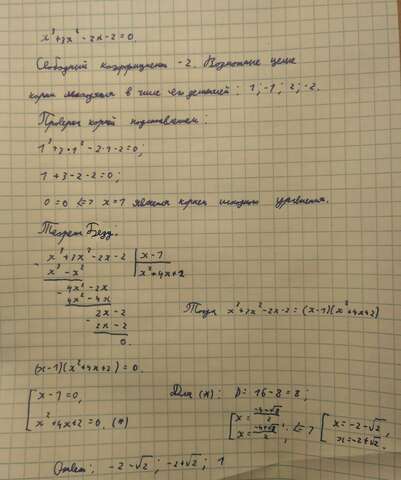 x³+3x²-2x-2=0.
Свободный коэффициент -2. Возможные целые
корни находятся в числе его делителей: 1; -1; 2; -2.
Проверка корней подстановкой:
1³+3·1²-2·1-2=0;
1+3-2-2=0;
0=0 <=> x=1 является корнем исходного уравнения.
Теорема Безу:
x³+3x²-2x-2 | x-1
x³-x² | x²+4x+2
- 4x²-2x
4x²-4x
- 2x-2
2x-2
0.
Тогда x³+3x²-2x-2=(x-1)(x²+4x+2)
(x-1)(x²+4x+2)=0.
[ x-1=0,
x²+4x+2=0. (*)
Для (*): D=16-8=8;
[ x=(-4-√8)/2
x=(-4+√8)/2; <=> [ x=-2-√2,
x=-2+√2.
Ответ: -2-√2; -2+√2; 1